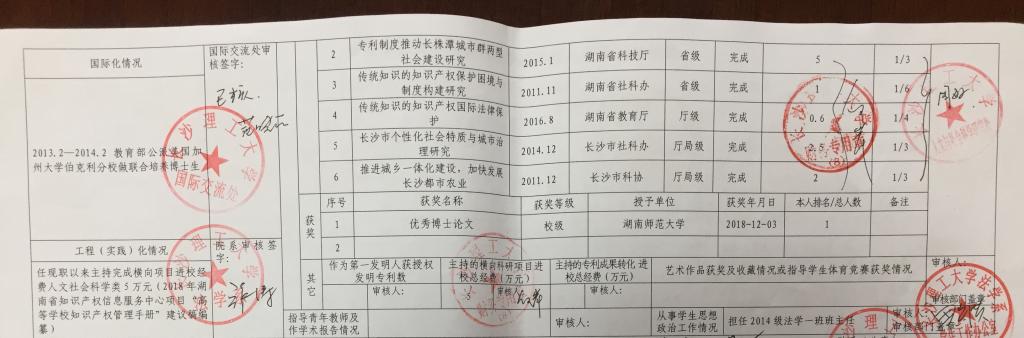 国际化情况
国际交流处审
核签字:
2013.2—2014.2 教育部公派美国加
州大学伯克利分校做联合培养博士生
国际交流处
工程（实践）化情况
院系审核签
字:
任现职以来主持完成横向项目进校经
费人文社会科学类5万元（2018年湖
南省知识产权信息服务中心项目“高
等学校知识产权管理手册”建议稿编
纂）
2 专利制度推动长株潭城市群两型 2015.1 湖南省科技厅 省级 完成 5 1/3
社会建设研究
3 传统知识的知识产权保护困境与 2011.11 湖南省社科办 省级 完成 1 1/6
制度构建研究
4 传统知识的知识产权国际法律保 2016.8 湖南省教育厅 厅级 完成 0.6 1/4
护
5 长沙市个性化社会特质与城市治 2014.12 长沙市社科办 厅局级 完成 2.5 1/3
理研究
6 推进城乡一体化建设，加快发展 2011.12 长沙市科协 厅局级 完成 2 1/3
长沙都市农业
获奖
序号 获奖名称 获奖等级 授予单位 获奖年月日 本人排名/总人数 备注
1 优秀博士论文 校级 湖南师范大学 2018-12-03 1
2
其它
作为第一发明人获授权
发明专利数
主持的横向科研项目进
校总经费（万元）
主持的专利成果转化 进
校总经费（万元）
艺术作品获奖及收藏情况或指导学生体育竞赛获奖情况
审核人:
审核人:
5
审核人:
审核人:
审核部门盖章:
指导青年教师及
作学术报告情况
审核人:
从事学生思想
政治工作情况
担任2014级法学一班班主任
审核人:
审核部门盖章: